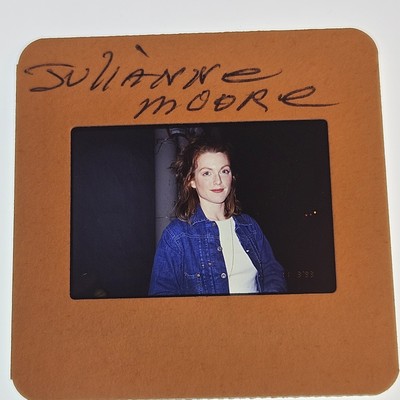 JULIANNE
MOORE